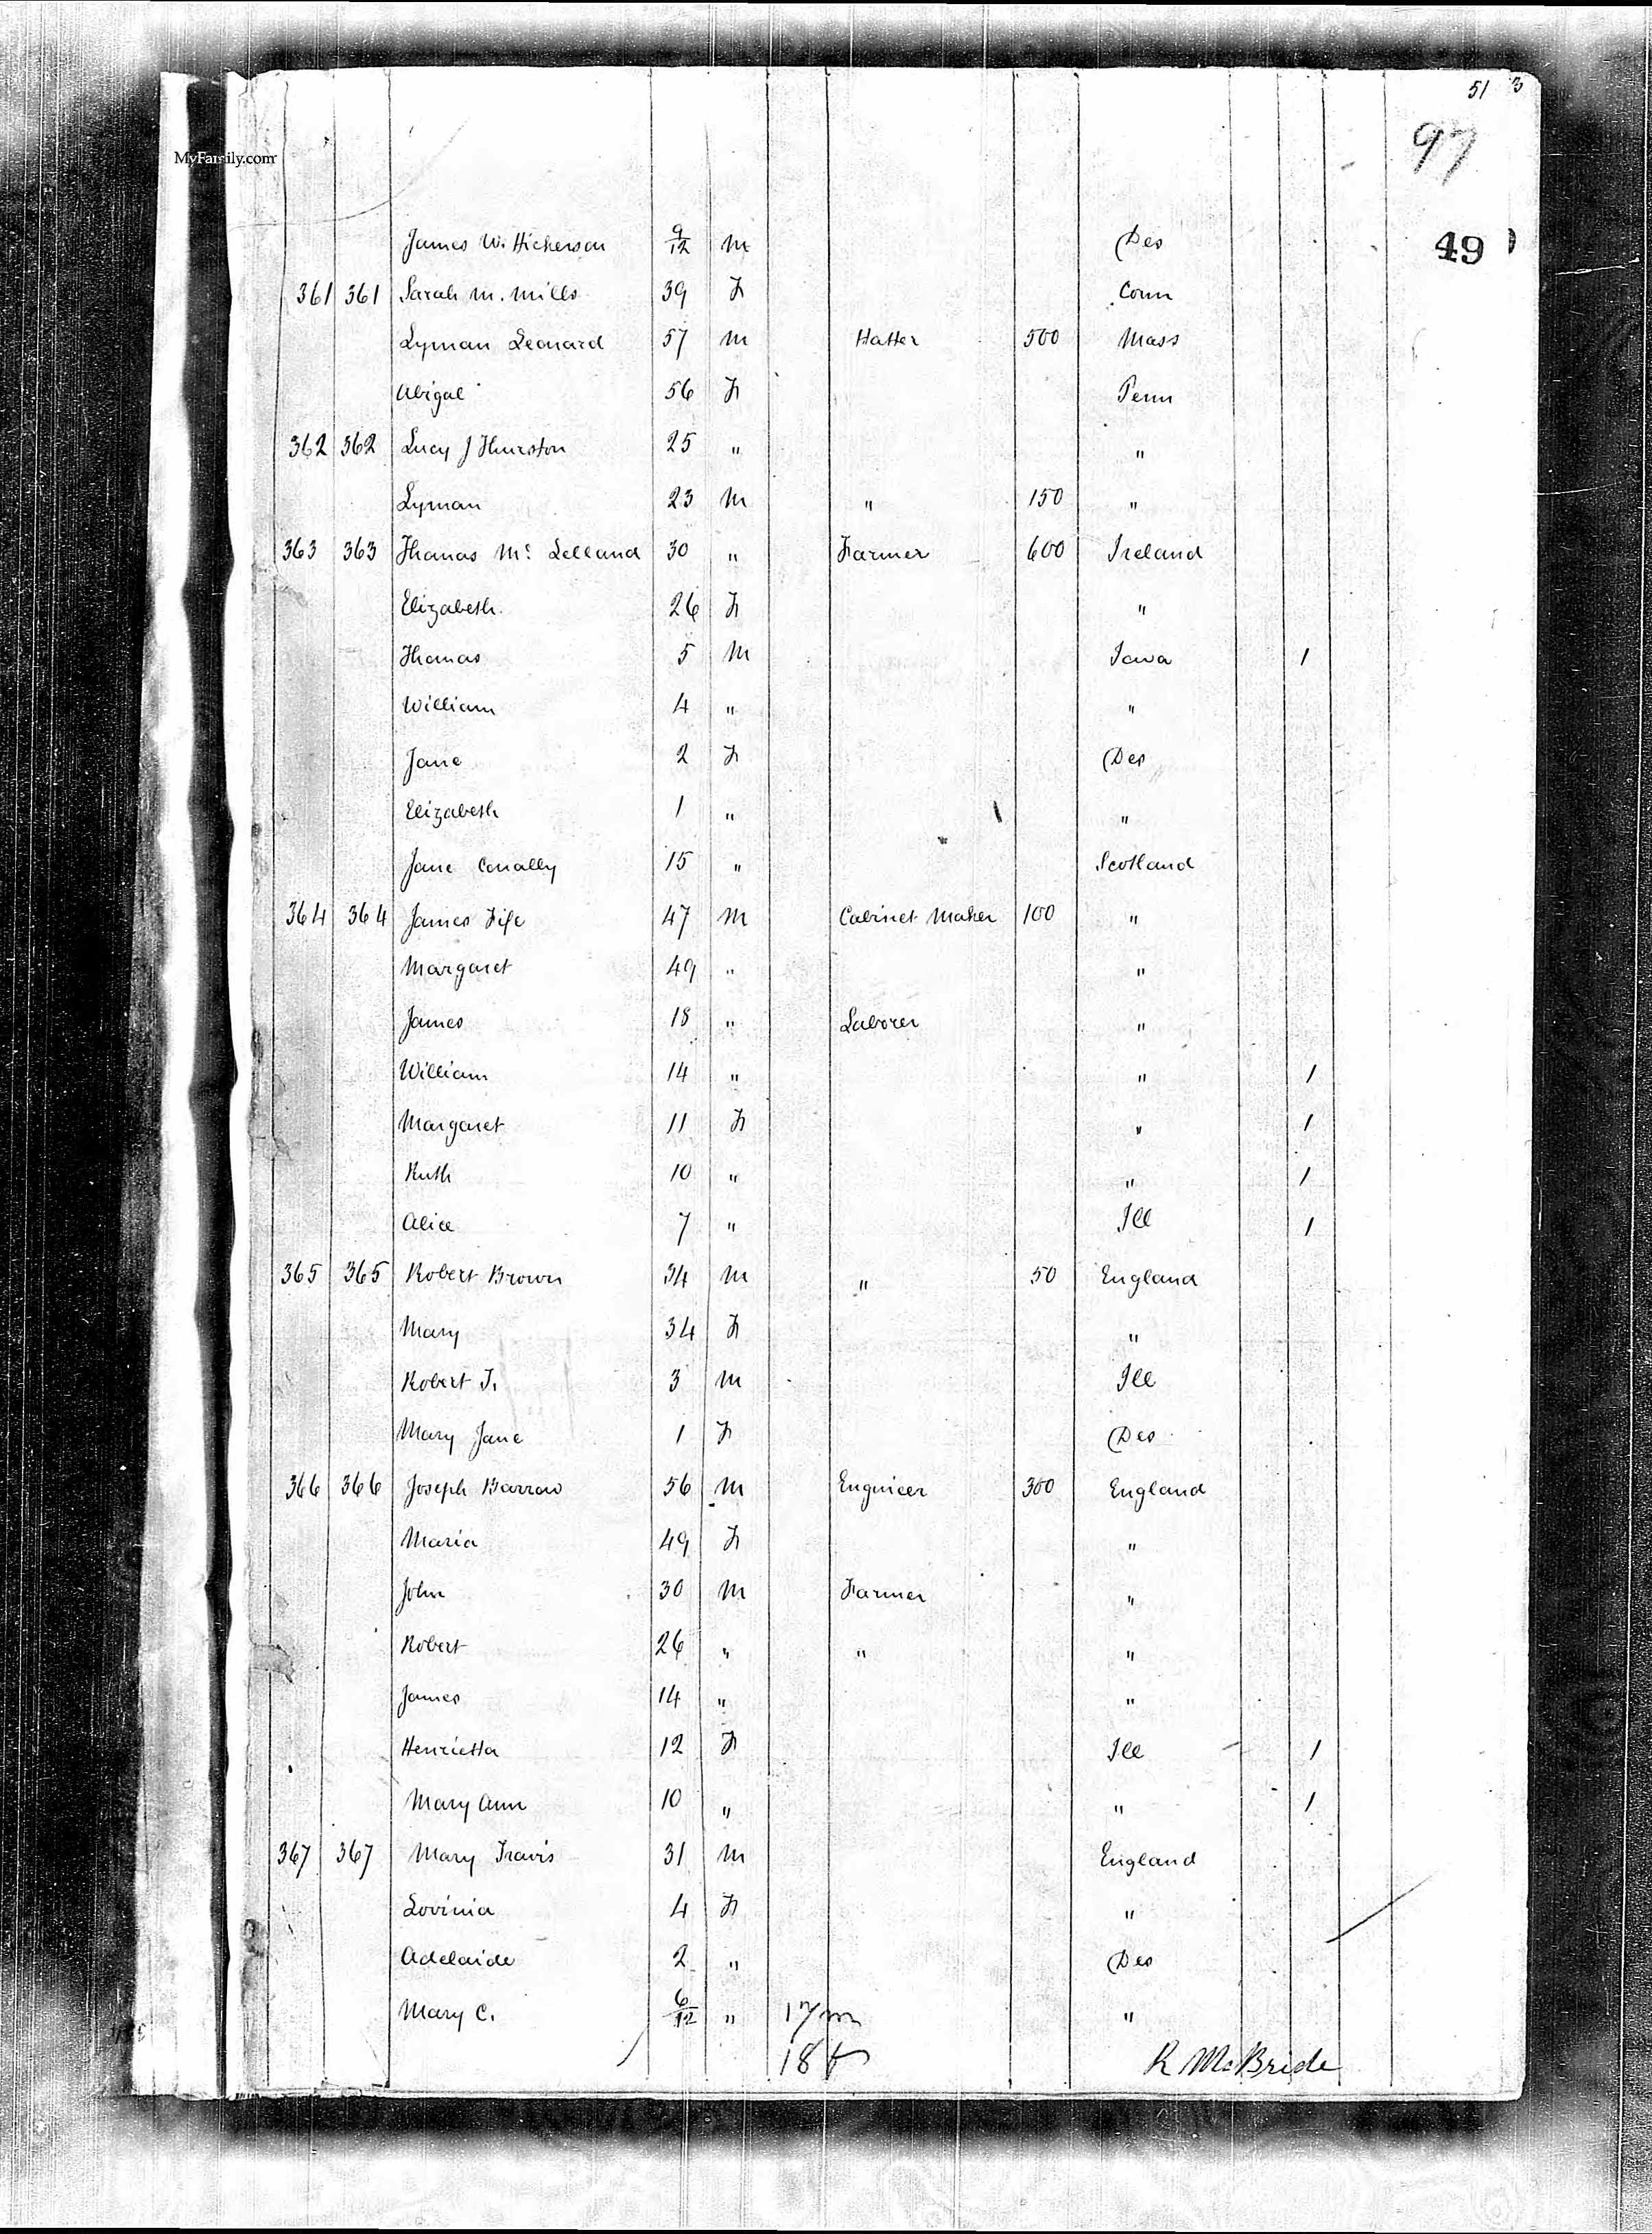 51 3
97
MyFamily.com
49
James W. Hickerson 9/12 M Des
361 361 Sarah M. Mills 39 F Conn
Lyman Leonard 57 M Hatter 500 Mass
Abigal 56 F Penn
362 362 Lucy J Thurston 25 " "
Lyman 23 M " 150 "
363 363 Thomas Mc Lelland 30 " Farmer 600 Ireland
Elizabeth 26 F "
Thomas 5 M Iowa 1
William 4 " "
Jane 2 F Des
Elizabeth 1 " "
Jane Conally 15 " Scotland
364 364 James Fife 47 M Cabinet Maker 100 "
Margaret 49 " "
James 18 " Laborer "
William 14 " " 1
Margaret 11 F " 1
Ruth 10 " " 1
Alice 7 " Ill 1
365 365 Robert Brown 34 M " 50 England
Mary 34 F "
Robert T. 3 M Ill
Mary Jane 1 F Des
366 366 Joseph Barrow 56 M Engineer 300 England
Maria 49 F "
John 30 M Farmer "
Robert 26 " " "
James 14 " "
Henrietta 12 F Ill 1
Mary Ann 10 " " 1
367 367 Mary Travis 31 M England
Lovinia 4 F "
Adelaide 2 " Des
Mary C. 6/12 " 17 m "
18 f R McBride